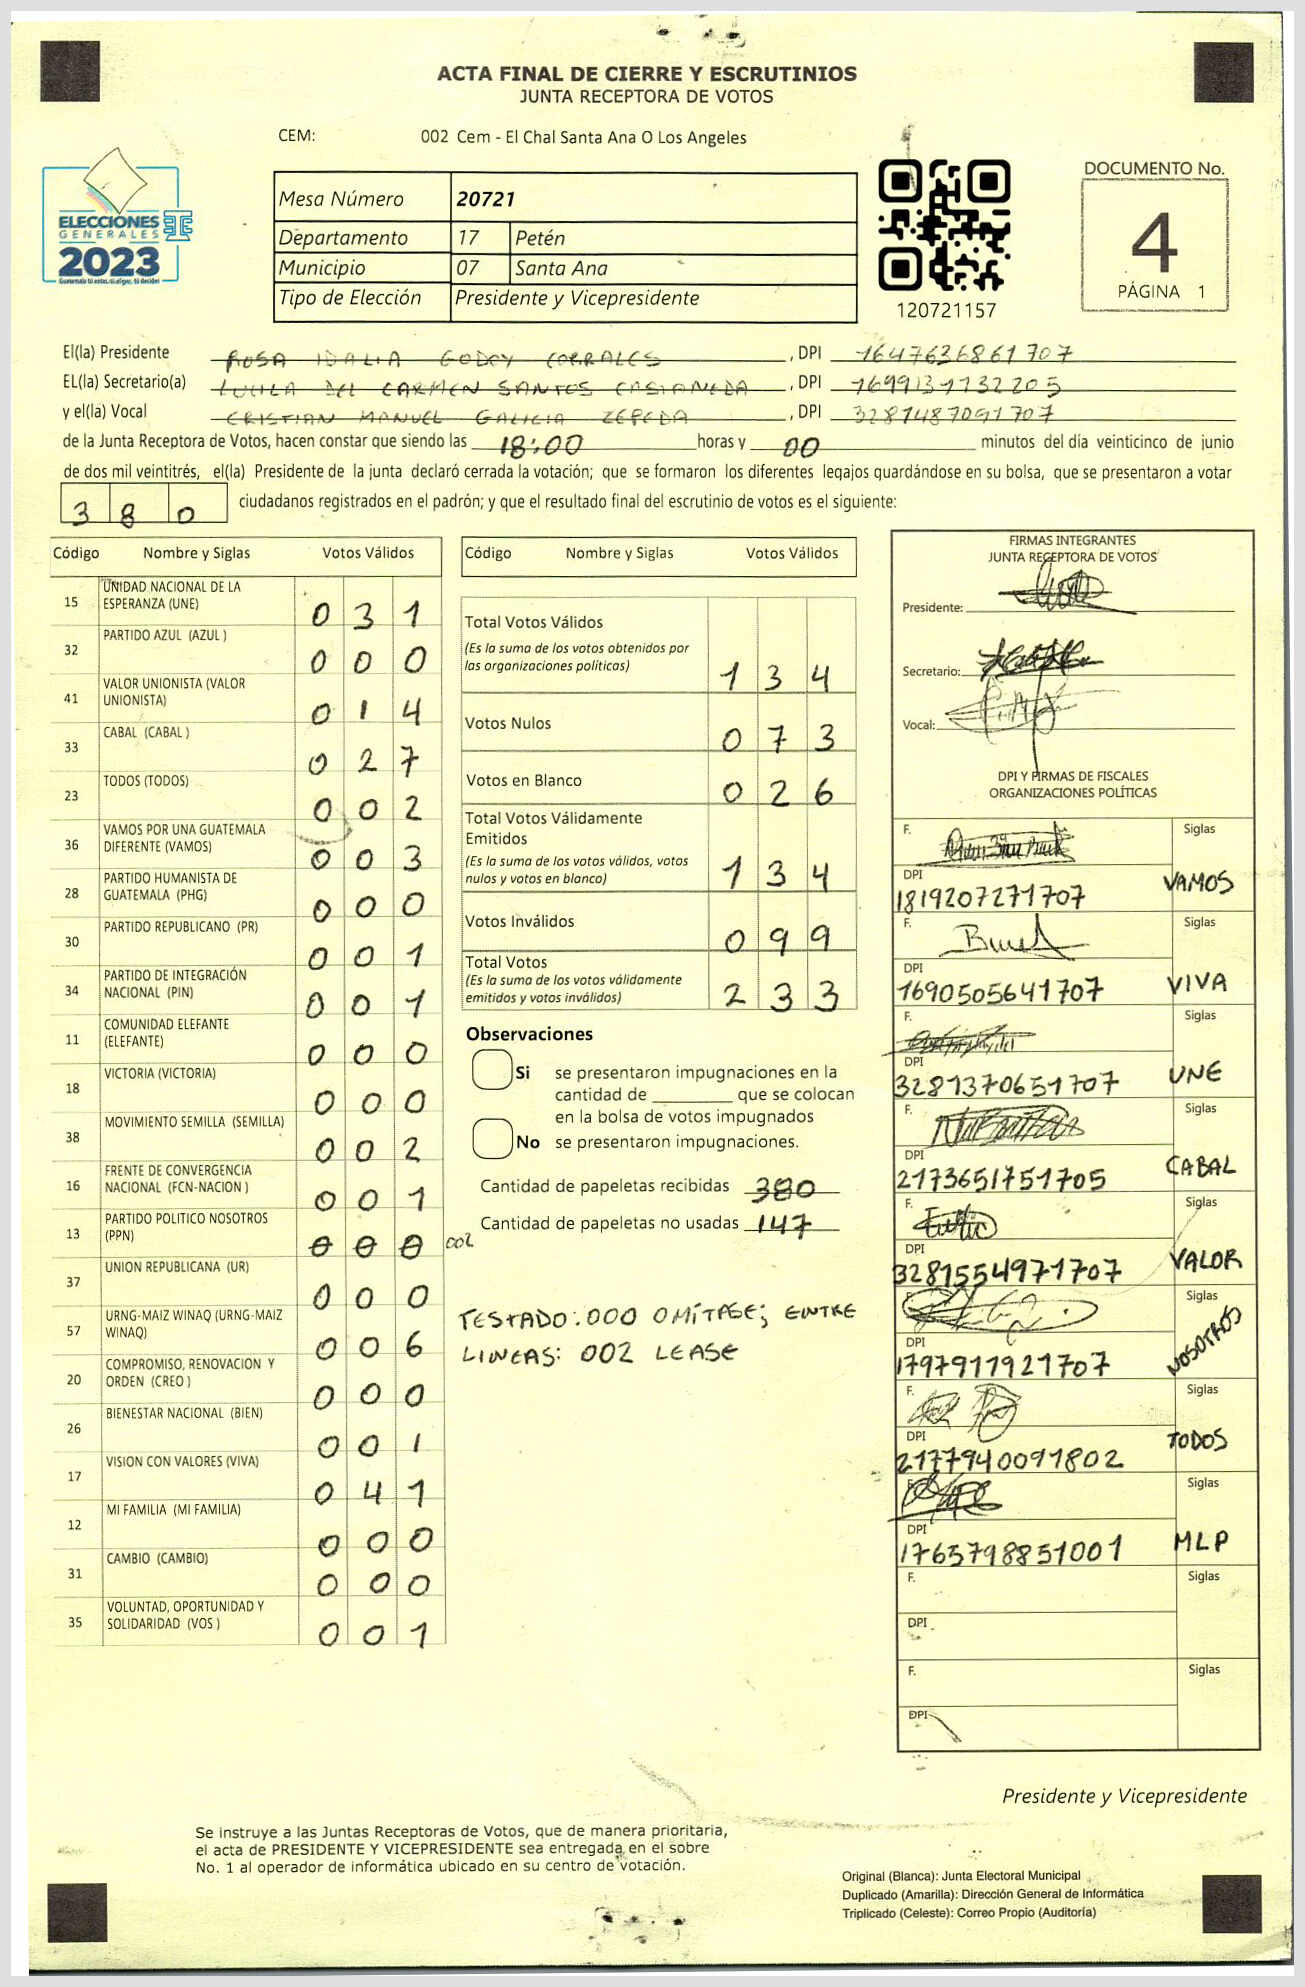 ACTA FINAL DE CIERRE Y ESCRUTINIOS
JUNTA RECEPTORA DE VOTOS
CEM: 002 Cem - El Chal Santa Ana O Los Angeles
ELECCIONES
GENERALES
2023
Mesa Número 20721
Departamento 17 Petén
Municipio 07 Santa Ana
Tipo de Elección Presidente y Vicepresidente
120721157
DOCUMENTO No.
4
PÁGINA 1
El(la) Presidente ROSA IDALIA GODOY CORRALES, DPI 1647636861707
EL(la) Secretario(a) LUCILA DEL CARMEN SANTOS CASTAÑEDA, DPI 1699131732205
y el(la) Vocal CRISTIAN MANUEL GALICIA ZEPEDA, DPI 3281487091707
de la Junta Receptora de Votos, hacen constar que siendo las 18:00 horas y 00 minutos del día veinticinco de junio
de dos mil veintitrés, el(la) Presidente de la junta declaró cerrada la votación; que se formaron los diferentes legajos guardándose en su bolsa, que se presentaron a votar
380 ciudadanos registrados en el padrón; y que el resultado final del escrutinio de votos es el siguiente:
Código Nombre y Siglas Votos Válidos
15 UNIDAD NACIONAL DE LA ESPERANZA (UNE) 031
32 PARTIDO AZUL (AZUL ) 000
41 VALOR UNIONISTA (VALOR UNIONISTA) 014
33 CABAL (CABAL ) 027
23 TODOS (TODOS) 002
36 VAMOS POR UNA GUATEMALA DIFERENTE (VAMOS) 003
28 PARTIDO HUMANISTA DE GUATEMALA (PHG) 000
30 PARTIDO REPUBLICANO (PR) 001
34 PARTIDO DE INTEGRACIÓN NACIONAL (PIN) 001
11 COMUNIDAD ELEFANTE (ELEFANTE) 000
18 VICTORIA (VICTORIA) 000
38 MOVIMIENTO SEMILLA (SEMILLA) 002
16 FRENTE DE CONVERGENCIA NACIONAL (FCN-NACION ) 001
13 PARTIDO POLITICO NOSOTROS (PPN) 000 002
37 UNION REPUBLICANA (UR) 000
57 URNG-MAIZ WINAQ (URNG-MAIZ WINAQ) 006
20 COMPROMISO, RENOVACION Y ORDEN (CREO ) 000
26 BIENESTAR NACIONAL (BIEN) 001
17 VISION CON VALORES (VIVA) 041
12 MI FAMILIA (MI FAMILIA) 000
31 CAMBIO (CAMBIO) 000
35 VOLUNTAD, OPORTUNIDAD Y SOLIDARIDAD (VOS ) 001
Código Nombre y Siglas Votos Válidos
Total Votos Válidos
(Es la suma de los votos obtenidos por
las organizaciones políticas) 134
Votos Nulos 073
Votos en Blanco 026
Total Votos Válidamente
Emitidos
(Es la suma de los votos válidos, votos
nulos y votos en blanco) 134
Votos Inválidos 099
Total Votos
(Es la suma de los votos válidamente
emitidos y votos inválidos) 233
Observaciones
Si se presentaron impugnaciones en la
cantidad de ________ que se colocan
en la bolsa de votos impugnados
No se presentaron impugnaciones.
Cantidad de papeletas recibidas 380
Cantidad de papeletas no usadas 147
TESTADO: 000 OMÍTASE; ENTRE
LINEAS: 002 LEASE
FIRMAS INTEGRANTES
JUNTA RECEPTORA DE VOTOS
Presidente:
Secretario:
Vocal:
DPI Y FIRMAS DE FISCALES
ORGANIZACIONES POLÍTICAS
F. Siglas
DPI
1819207271707 VAMOS
F. Siglas
DPI
1690505641707 VIVA
F. Siglas
DPI
3281370651707 UNE
F. Siglas
DPI
2173651751705 CABAL
F. Siglas
DPI
3281554971707 VALOR
F. Siglas
DPI
1797911921707 NOSOTROS
F. Siglas
DPI
2177940091802 TODOS
F. Siglas
DPI
1765798851001 MLP
F. Siglas
DPI
F. Siglas
DPI
Presidente y Vicepresidente
Se instruye a las Juntas Receptoras de Votos, que de manera prioritaria,
el acta de PRESIDENTE Y VICEPRESIDENTE sea entregada en el sobre
No. 1 al operador de informática ubicado en su centro de votación.
Original (Blanca): Junta Electoral Municipal
Duplicado (Amarilla): Dirección General de Informática
Triplicado (Celeste): Correo Propio (Auditoría)